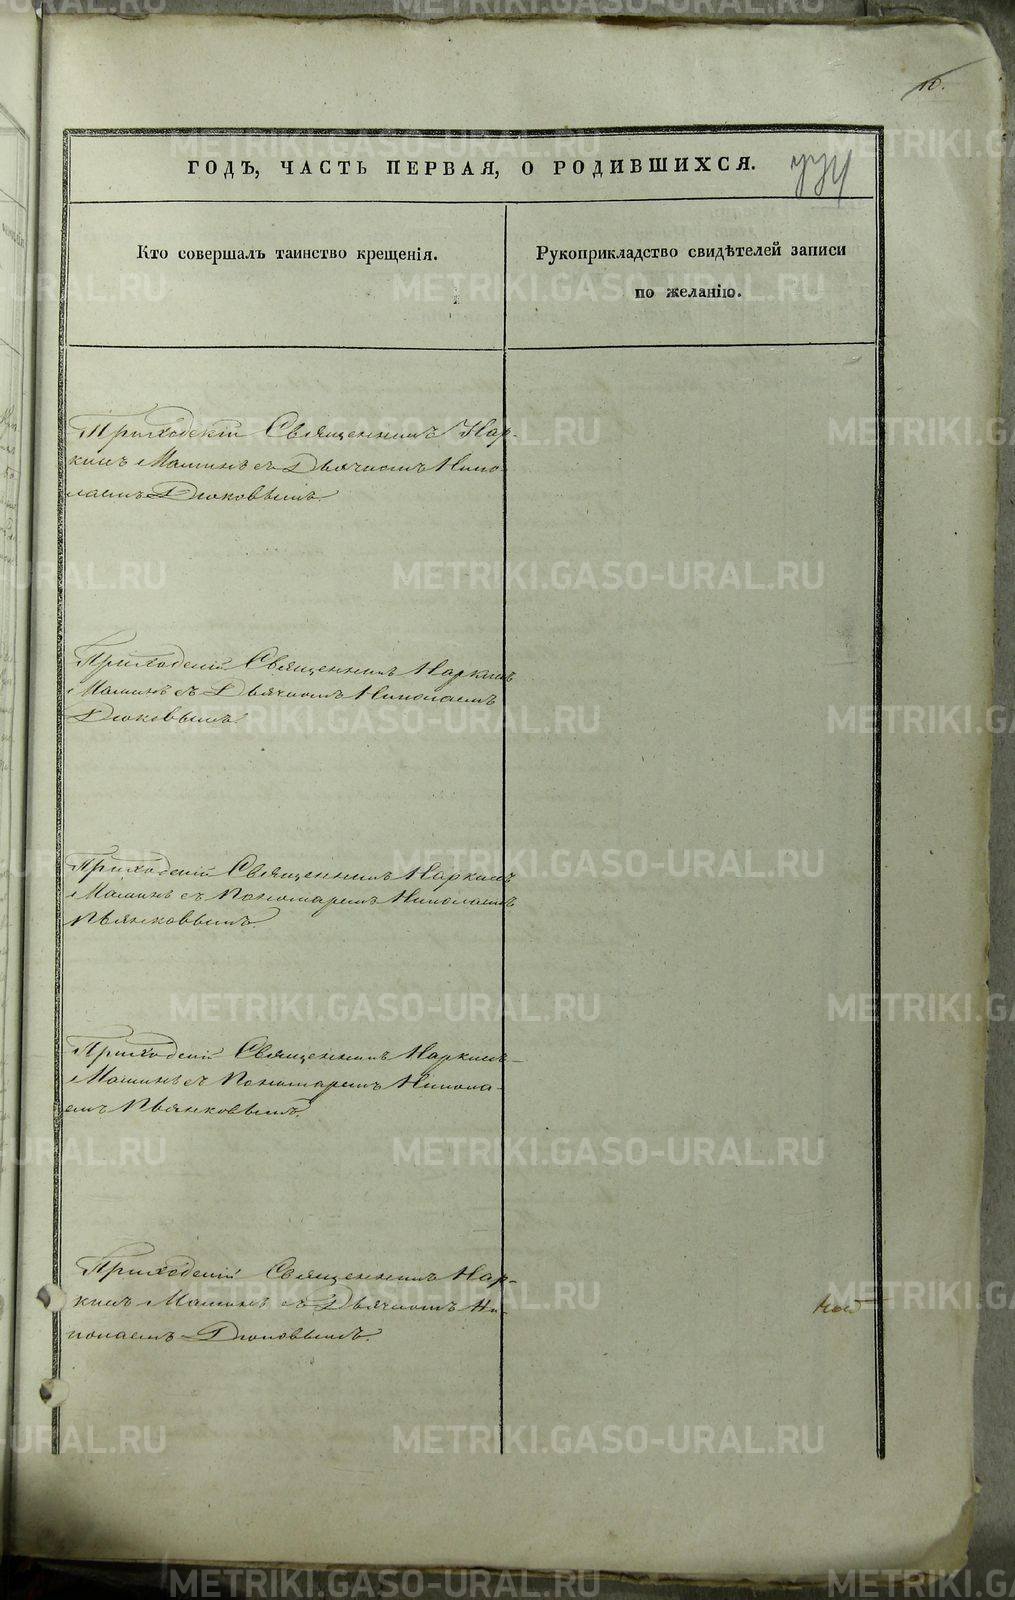 10.
ГОДЪ, ЧАСТЬ ПЕРВАЯ, О РОДИВШИХСЯ.
Кто совершалъ таинство крещенія.
Рукоприкладство свидѣтелей записи
по желанію.
Приходскій Священникъ Нар-
кисъ Мамин съ Дьячкомъ Нико
лаемъ Дюковымъ.
Приходскій Священникъ Наркисъ
Мамин съ Дьячкомъ Николаемъ
Дюковымъ.
Приходскій Священникъ Наркисъ
Мамин съ Пономаремъ Николаемъ
Пьянковымъ.
Приходскій Священникъ Наркисъ
Мамин съ Пономаремъ Никола-
емъ Пьянковымъ.
Приходскій Священникъ Нар-
кисъ Мамин съ Дьячкомъ Ни-
колаемъ Дюковымъ.
METRIKI.GASO-URAL.RU